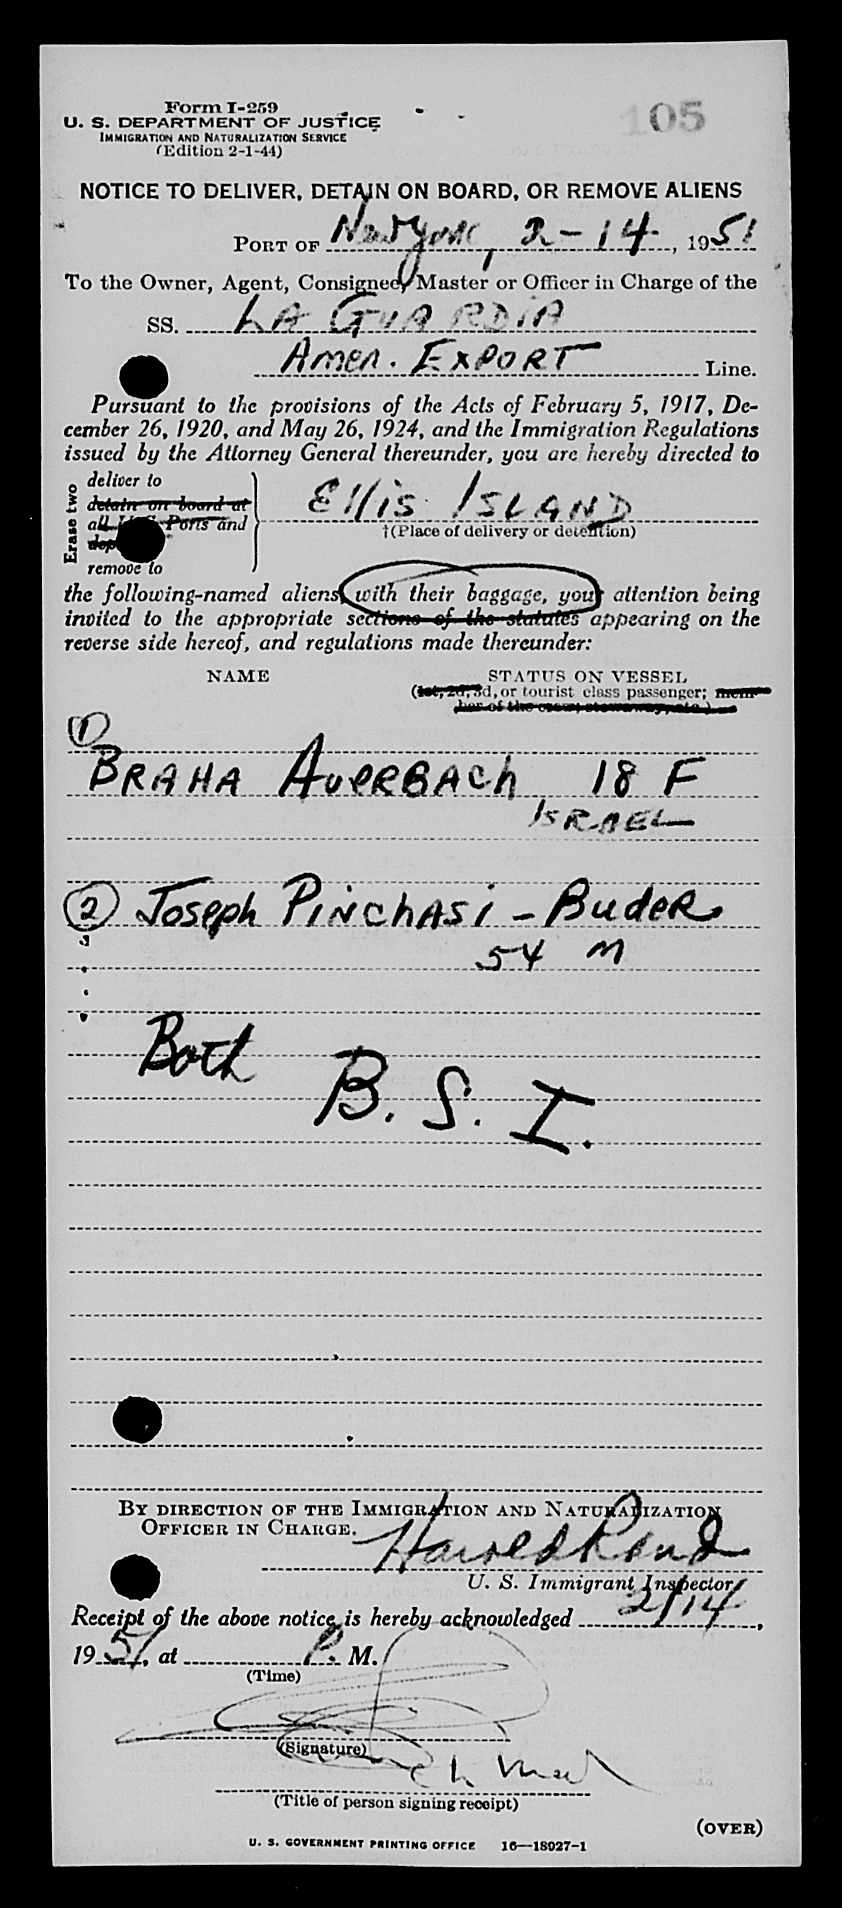 Form I-259
U. S. DEPARTMENT OF JUSTICE
IMMIGRATION AND NATURALIZATION SERVICE
(Edition 2-1-44)
105
NOTICE TO DELIVER, DETAIN ON BOARD, OR REMOVE ALIENS
PORT OF New York, 2-14-, 1951
To the Owner, Agent, Consignee, Master or Officer in Charge of the
SS. LA GUARDIA
Amer. EXPORT Line.
Pursuant to the provisions of the Acts of February 5, 1917, De-
cember 26, 1920, and May 26, 1924, and the Immigration Regulations
issued by the Attorney General thereunder, you are hereby directed to
Erase two
deliver to
detain on board at
all U. S. Ports and
remove to
Ellis ISLAND
†(Place of delivery or detention)
the following-named aliens, with their baggage, your attention being
invited to the appropriate sections of the statutes appearing on the
reverse side hereof, and regulations made thereunder:
NAME STATUS ON VESSEL
(1st, 2d, 3d, or tourist class passenger; mem-
ber of the crew, stowaway, etc.)
1
BRAHA AuerBAch 18 F
ISRAEL
2 Joseph PINchASi - BudeR
54 M
Both B. S. I.
BY DIRECTION OF THE IMMIGRATION AND NATURALIZATION
OFFICER IN CHARGE.
Harold Rand
U. S. Immigrant Inspector
Receipt of the above notice is hereby acknowledged 2/14,
1951, at P. M.
(Time)
(Signature)
(Title of person signing receipt)
(OVER)
U. S. GOVERNMENT PRINTING OFFICE 16—18027-1